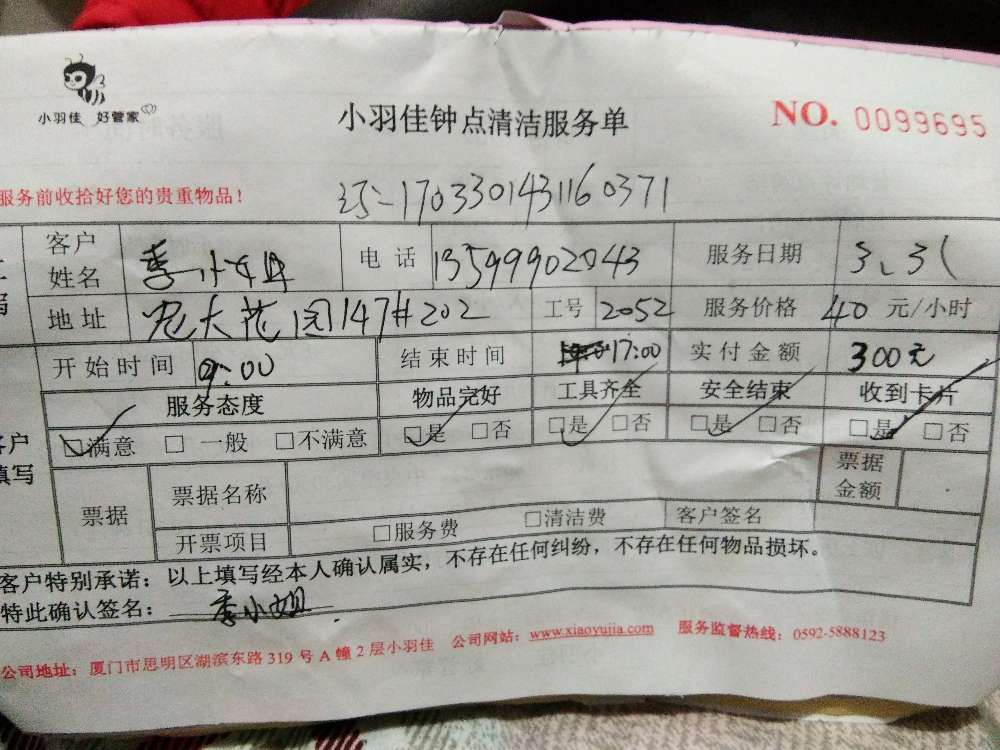 小羽佳 好管家
小羽佳钟点清洁服务单
NO. 0099695
服务前收拾好您的贵重物品!
1703301431160371
客户姓名 李小姐 电话 13599902043 服务日期 3、31
地址 龙大花园147#202 工号 2052 服务价格 40 元/小时
开始时间 9:00 结束时间 17:00 实付金额 300元
服务态度 物品完好 工具齐全 安全结束 收到卡片
☑满意 □一般 □不满意 ☑是 □否 ☑是 □否 ☑是 □否 ☑是 □否
客户填写
票据 票据名称 票据金额
开票项目 □服务费 □清洁费 客户签名
客户特别承诺：以上填写经本人确认属实，不存在任何纠纷，不存在任何物品损坏。
特此确认签名：李小姐
公司地址：厦门市思明区湖滨东路319号A幢2层小羽佳 公司网站：www.xiaoyujia.com 服务监督热线：0592-5888123